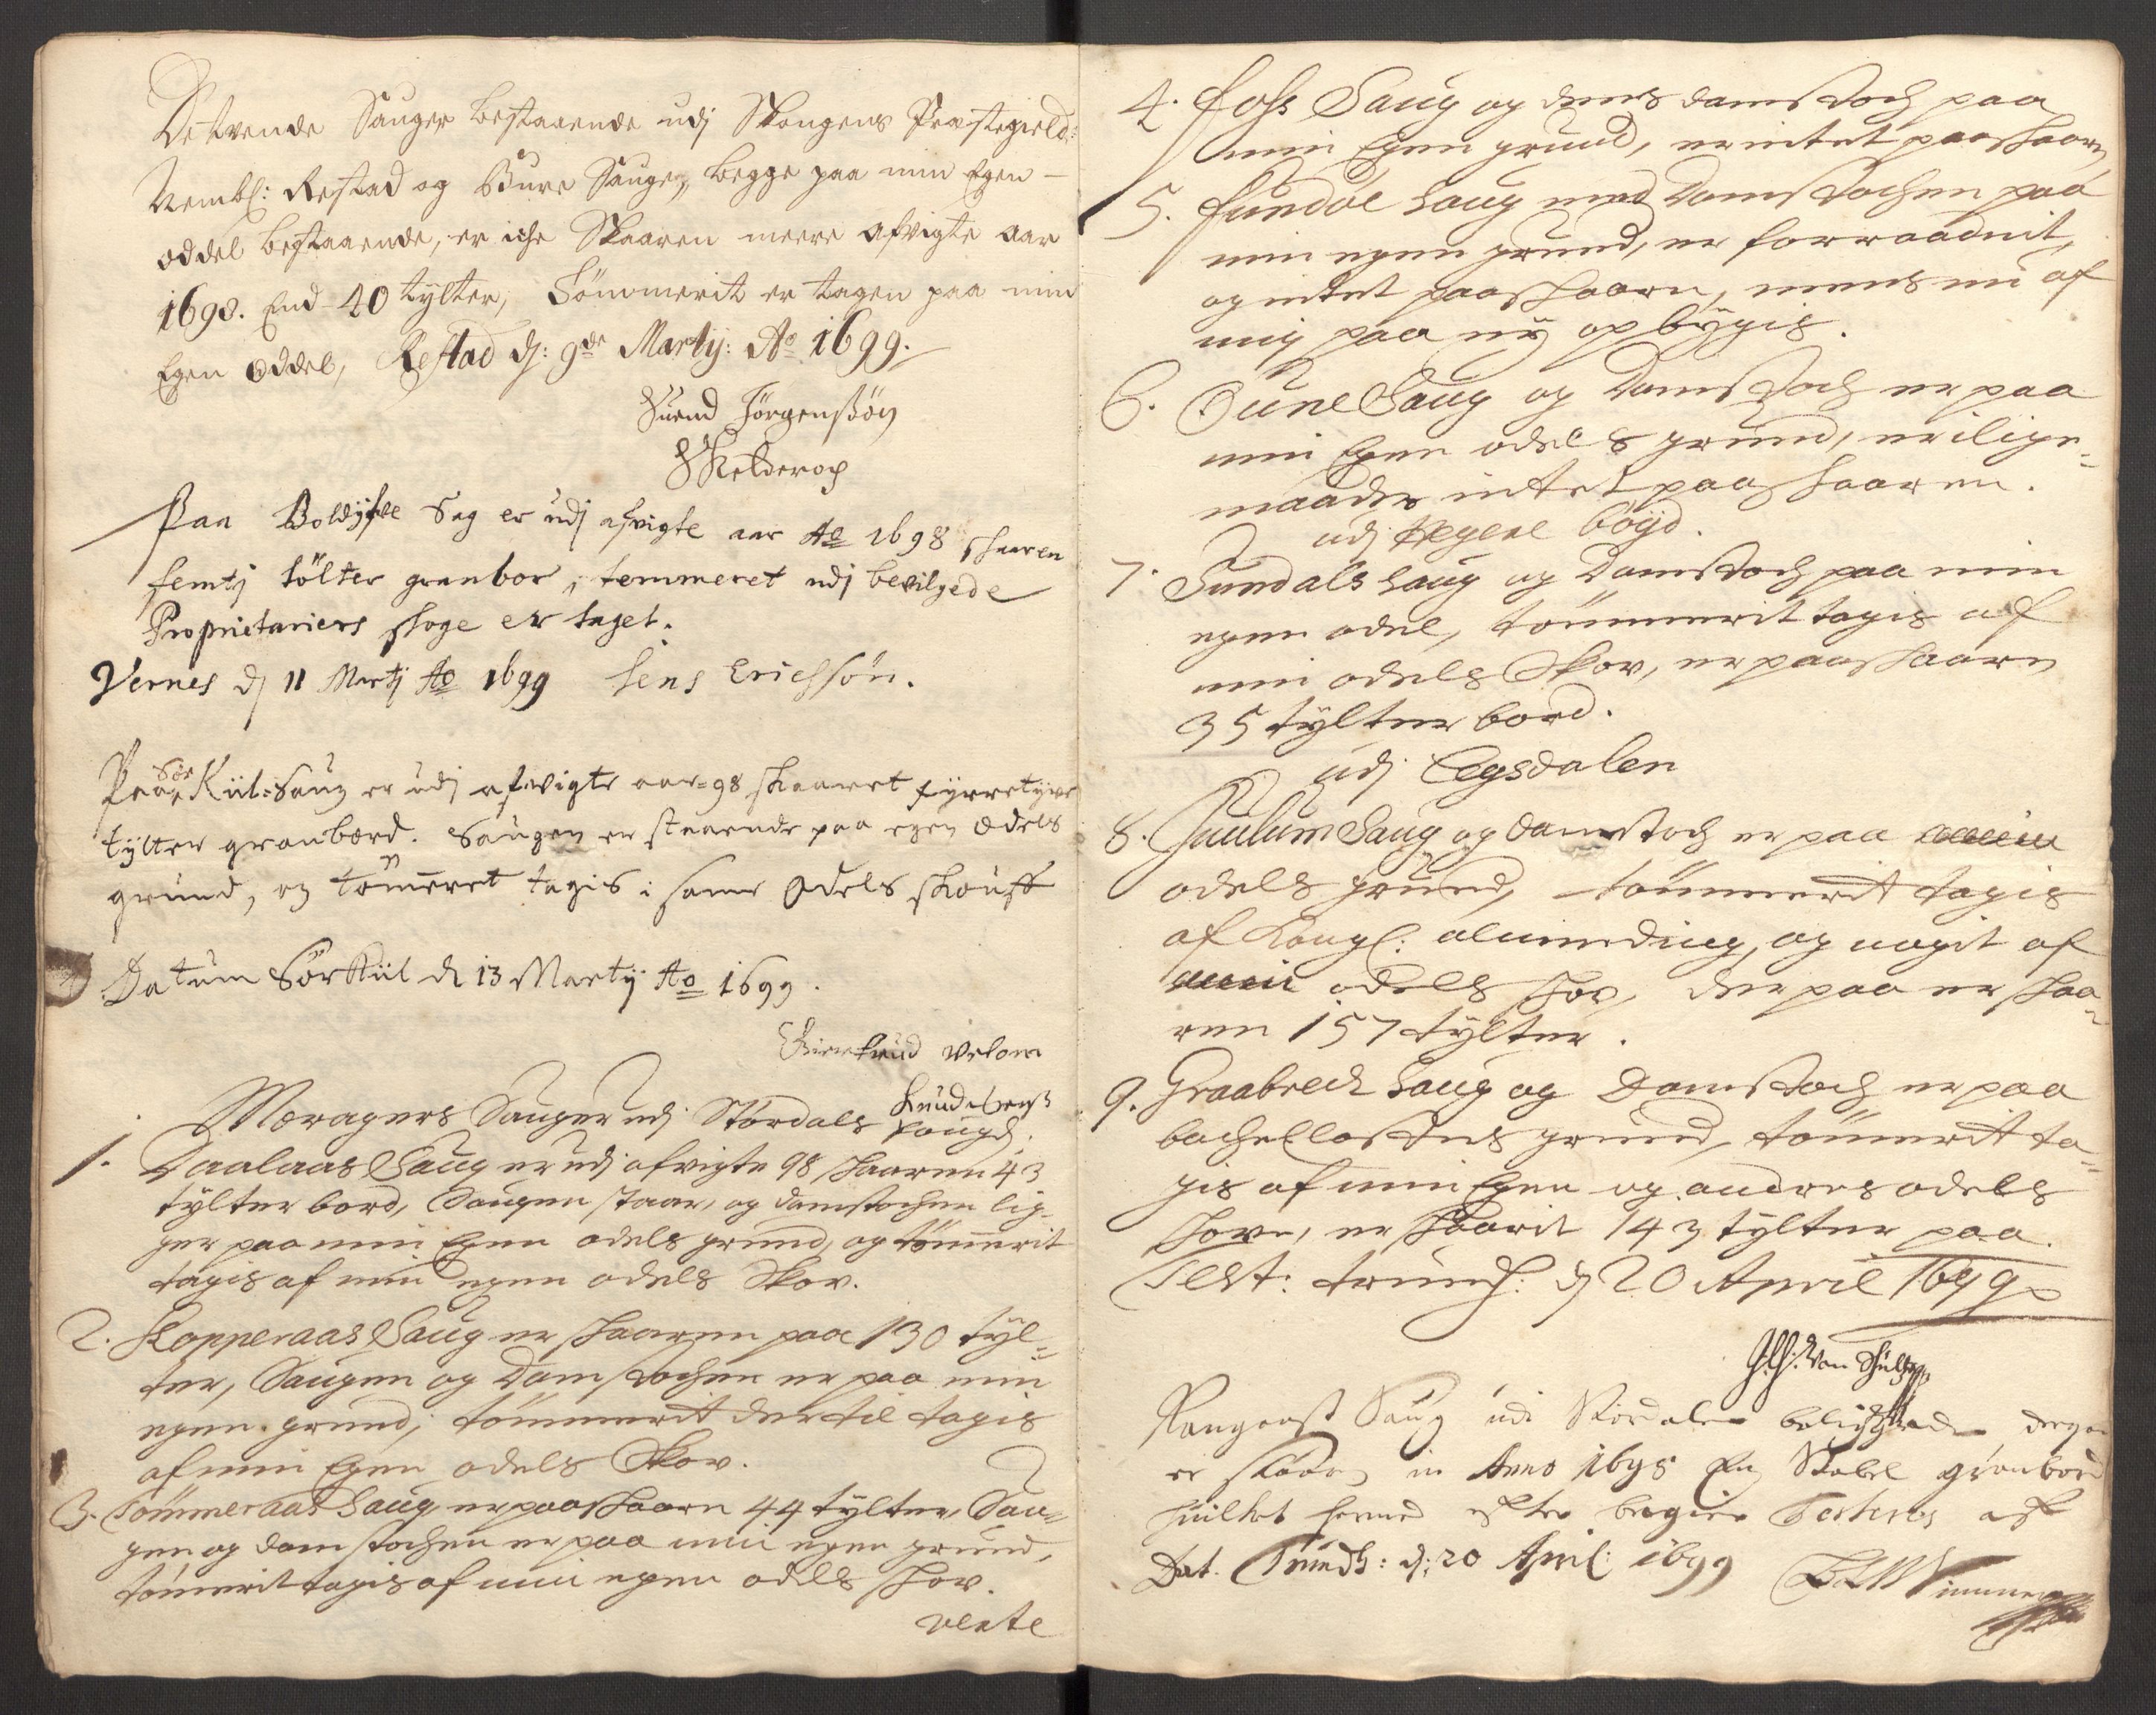 De tvende Sauger bestaaende udj Skongens Præstegield:
Nembl: Restad og Bure Sauge, begge paa min Egen
oddel bestaaende, er iche Skaaren meere afvigte aar
1698. End 40 tylter, Tömmerit er tagen paa min
Egen oddel, Restad dj: 9de Martij: Ao 1699.
Suend Jörgensßön
Kelderop
Paa Boldÿfle Sag er udj afvigte aar Ao 1698 skaaren
femtj tölter granbor, temmeret udj bevilgede
Proprietariers skoge er taget.
Vernes dj 11 Martj Ao 1699 Jens Erichsön.
Paa Sör Kiil-Saug er udj afvigte aar-98 skaaret fyrretyve
tylter granbord. Saugen er staaende paa egen odels
grund, og tömeret tagis i samme Odels skouff
Datum Sörkiil d 13 Martij Ao 1699.
Giertrud Velom
Knudsens
Meragers Sauger udj Stördals fougd.
1. Daalaas Saug er udj afvigte 98 skaaren 43
tylter bord, Saugen staar, og damstochen lig-
ger paa min Egen odels grund, og tömmerit
tagis af min egen odels Skov.
2. Kopperaas Saug er skaaren paa 130 tyl-
ter, Saugen og Damstochen er paa min
egen grund, tömmerit der til tagis
af min Egen odels Skov.
3. Tömmeraas Saug er paaskaaren 44 tylter, Sau-
gen og damstochen er paa min egen grund,
tömerit tagis af min egen odels skov.
4. Foss Saug og dens damstoch paa
min Egen grund, er intet paaskaaren
5. Fundöe Saug med Damstochen paa
min egen grund, er forraadnit,
og intet paaskaaren, mens nu af
mig paa ny opbÿgis.
6. Oune Saug og Damstoch er paa
min Egen odels grund, er i lige-
maade intet paaskaaren.
udj Hegere böyd.
7. Sundals Saug og Damstoch paa min
egen odel, tömmerit tagis af
min odels Skov, er paaskaaren
35 tylter bord.
udj Legsdalen
8. Juulum Saug og damstoch er paa
odels grund, tömmerit tagis
af Kongl: alminding, og noget af
odels skov, der paa er skaa-
ren 157 tylter.
9. Graabrech Saug og Damstoch er paa
bachellostens grund, tömerit ta-
gis af min Egen og andres odels
skove, er skaarit 143 tylter paa.
Test: trundh: dj 20 April 1699
von Schultz
Saug udi Stördalen beliggende derpaa
er skaaren in Anno 1698 En Stabel granbord
huilket hermed efter begier Testeres af
Dat. Trundh: dj: 20 April: 1699